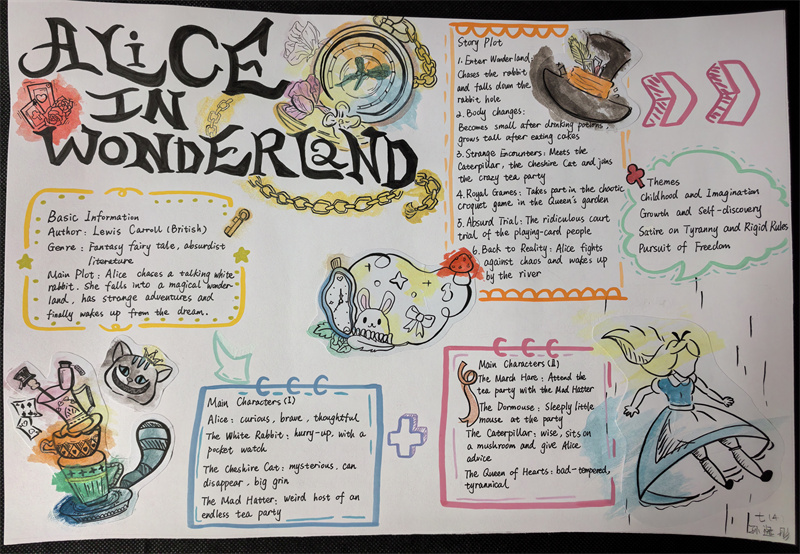 ALICE
IN
WONDERLAND
Basic Information
Author: Lewis Carroll (British)
Genre: Fantasy fairy tale, absurdist
literature
Main Plot: Alice chases a talking white
rabbit. She falls into a magical wonder-
land, has strange adventures and
finally wakes up from the dream.
Story Plot
1. Enter Wonderland:
Chases the rabbit
and falls down the
rabbit hole
2. Body changes:
Becomes small after drinking potions,
grows tall after eating cakes
3. Strange Encounters: Meets the
Caterpillar, the Cheshire Cat and joins
the crazy tea party
4. Royal Games: Takes part in the chaotic
croquet game in the Queen's garden
5. Absurd Trial: The ridiculous court
trial of the playing-card people
6. Back to Reality: Alice fights
against chaos and wakes up
by the river
Themes
Childhood and Imagination
Growth and Self-discovery
Satire on Tyranny and Rigid Rules
Pursuit of Freedom
Main Characters (I)
Alice: curious, brave, thoughtful
The White Rabbit: hurry-up, with a
pocket watch
The Cheshire Cat: mysterious, can
disappear, big grin
The Mad Hatter: weird host of an
endless tea party
Main Characters (II)
The March Hare: Attend the
tea party with the Mad Hatter
The Dormouse: Sleeply little
mouse at the party
The Caterpillar: wise, sits on
a mushroom and give Alice
advice
The Queen of Hearts: bad-tempered,
tyrannical